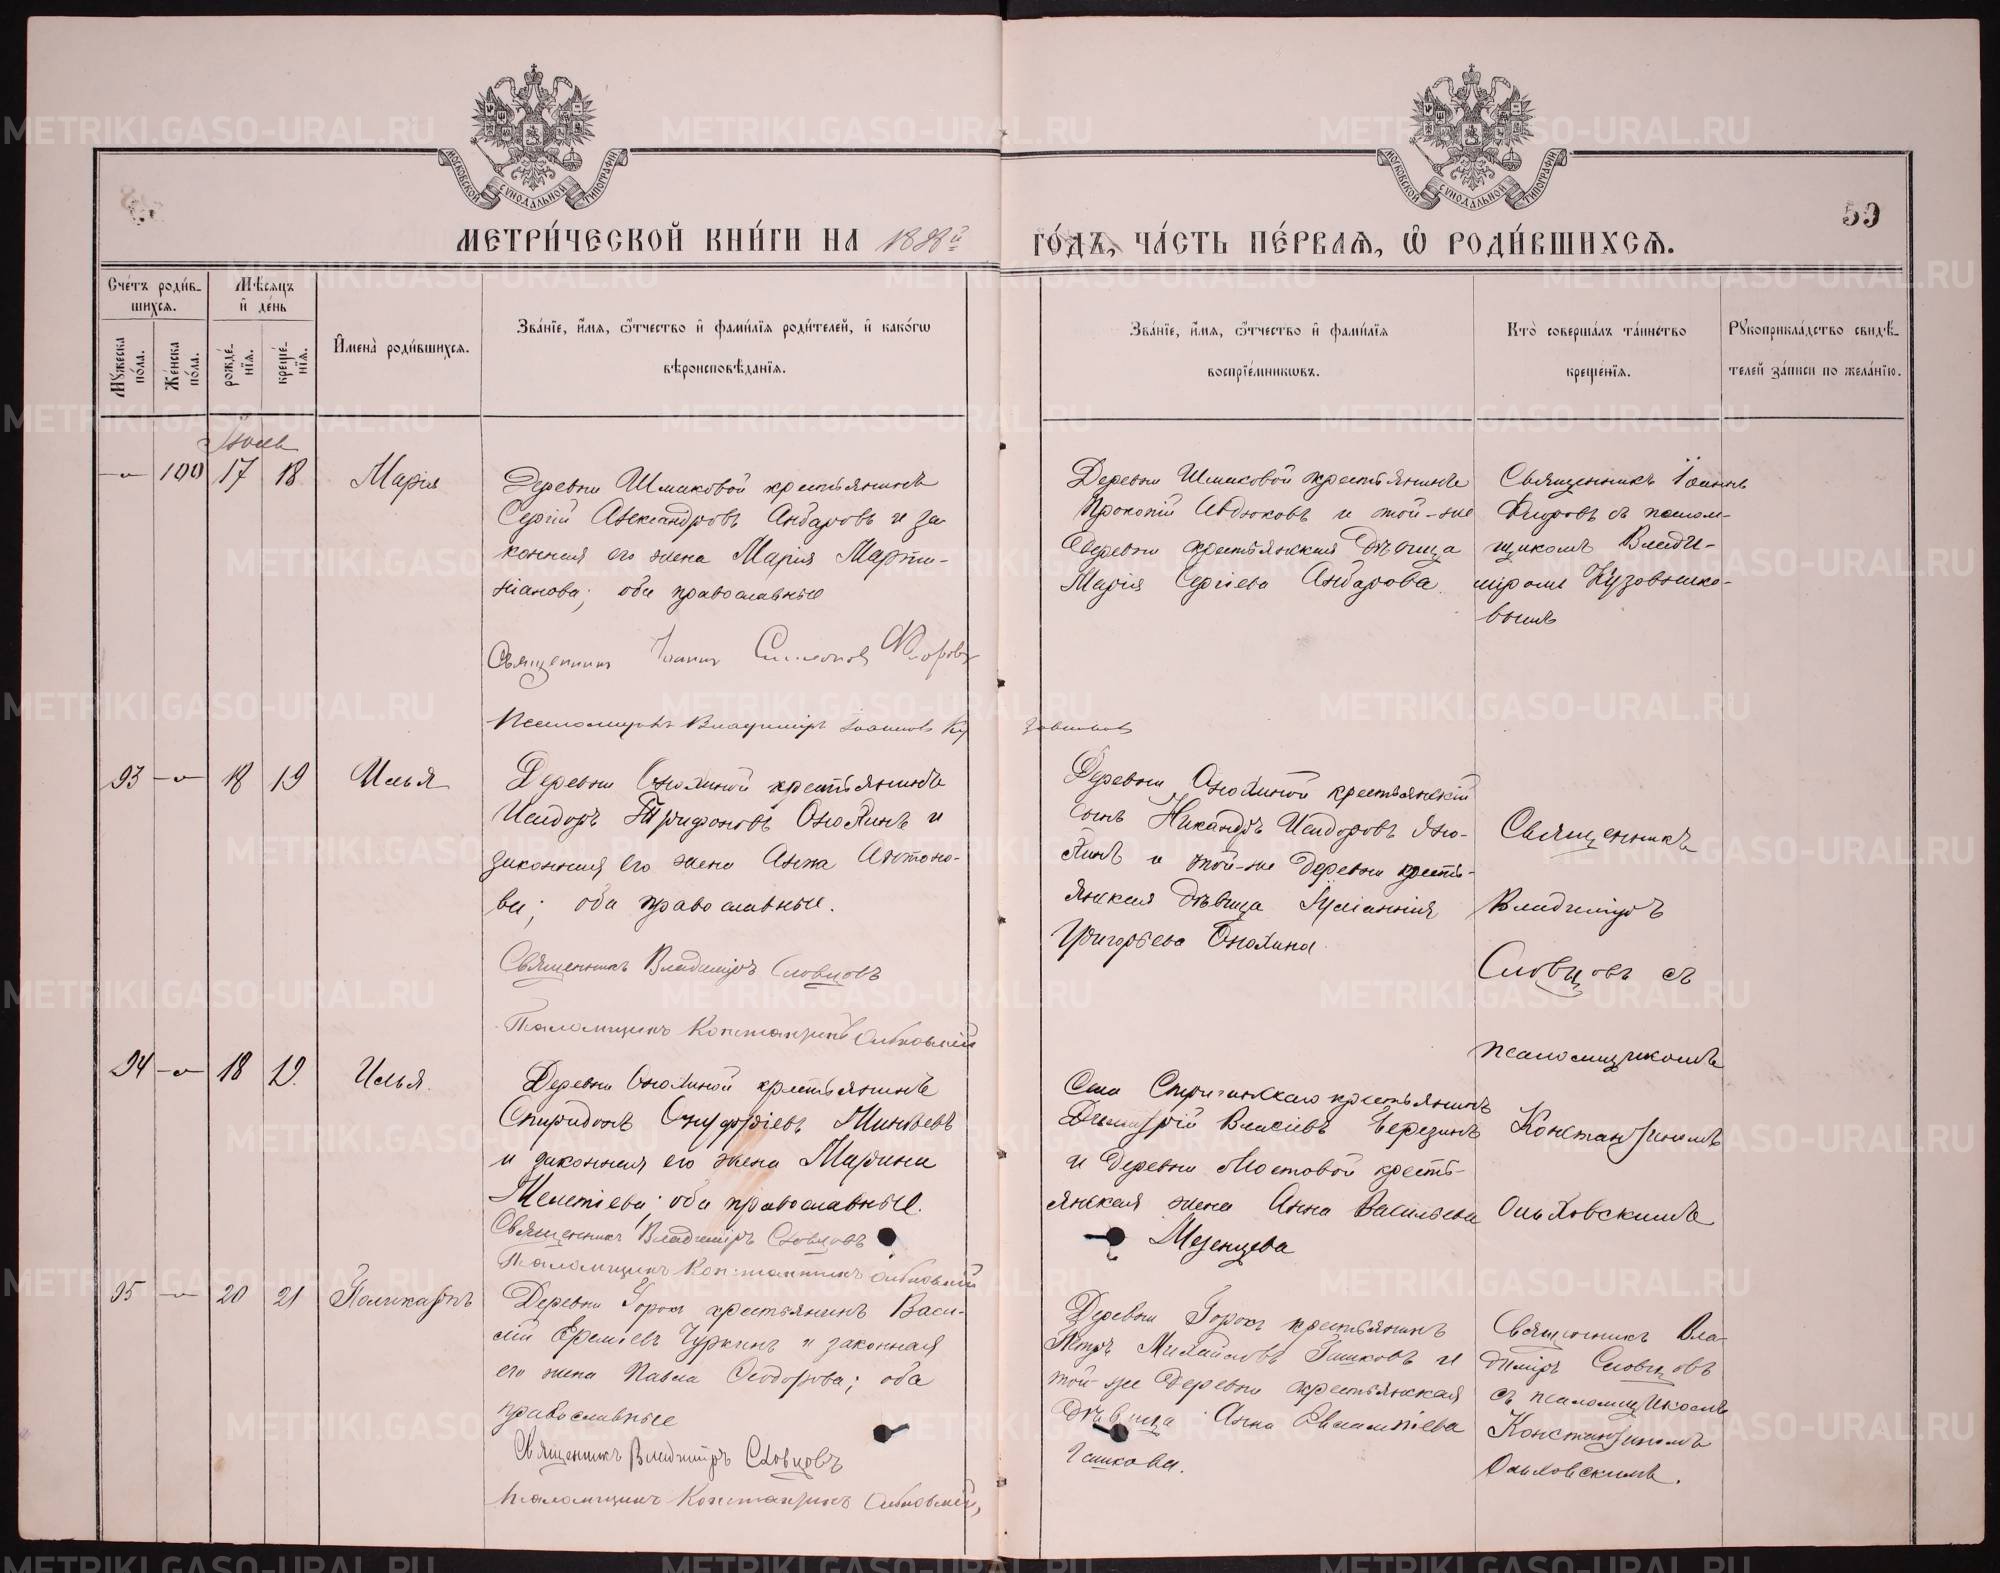 МОСКОВСКОЙ СУНОДАЛЬНОЙ ТИПОГРАФІИ
МОСКОВСКОЙ СУНОДАЛЬНОЙ ТИПОГРАФІИ
59
МЕТРИ́ЧЕСКОЙ КНИ́ГИ НА 1888й
ГО́ДЪ, ЧА́СТЬ ПЕ́РВАЯ, Ѡ РОДИ́ВШИХСЯ.
Сче́тъ роди́в-
шихся.
Мѣ́сяцъ
и҆ де́нь
Мꙋ́жеска по́ла.
Же́нска по́ла.
рожде́-нїя.
креще́-нїя.
И҆мена̀ роди́вшихся.
Зва́нїе, и҆́мя, ѻ҆́тчество и҆ фами́лїя роди́телей, и҆ како́гѡ
вѣроисповѣ́данїя.
Зва́нїе, и҆́мя, ѻ҆́тчество и҆ фами́лїя
воспрїе́мникѡвъ.
Кто̀ соверша́лъ та́инство
креще́нїя.
Рꙋкоприкла́дство свидѣ́-
телей за́писи по жела́нїю.
Іюль
100 17 18 Марія
Деревни Шмаковой крестьянинъ
Сергій Александровъ Анбаровъ и за-
конная его жена Марія Марти-
ніанова; оба православные
Священникъ Іоаннъ Симеонов Флоровъ
Псаломщикъ Владиміръ Іоаннов Ку
зовников
Деревни Шмаковой крестьянинъ
Прокопій Авдюковъ и той-же
деревни крестьянская дѣвица
Марія Сергіева Анбарова
Священникъ Іоаннъ
Флоровъ съ псалом-
щикомъ Влади-
міромъ Кузовнико-
вымъ
93 18 19 Илья
Деревни Онохиной крестьянинъ
Исидоръ Трифоновъ Онохинъ и
законная его жена Анна Антоно-
ва; оба православные.
Священникъ Владиміръ Словцовъ
Псаломщикъ Константинъ Ольховскій
Деревни Онохиной крестьянскій
сынъ Никандръ Исидоровъ Оно-
хинъ и той-же деревни кресть-
янская дѣвица Іуліаннія
Григорьева Онохина.
Священникъ
Владиміръ
Словцовъ съ
псаломщикомъ
Константиномъ
Ольховскимъ
94 18 19. Илья.
Деревни Онохиной крестьянинъ
Спиридонъ Онуфріевъ Минѣевъ
и законная его жена Марина
Мелетіева; оба православные.
Священникъ Владиміръ Словцовъ
Псаломщикъ Константинъ Ольховскій
Села Стриганскаго крестьянинъ
Димитрій Власіевъ Березинъ
и деревни Мостовой кресть-
янская жена Анна Васильева
Мезенцева
95 20 21 Поликарпъ
Деревни Горокъ крестьянинъ Васи-
лій Еремѣевъ Чуркинъ и законная
его жена Павла Ѳеодорова; оба
православные
Священникъ Владиміръ Словцовъ
Псаломщикъ Константинъ Ольховскій,
Деревни Горокъ крестьянинъ
Петръ Михайловъ Гашковъ и
той-же деревни крестьянская
дѣвица Анна Евлампіева
Гашкова.
Священникъ Вла-
диміръ Словцовъ
съ псаломщикомъ
Константиномъ
Ольховскимъ.
METRIKI.GASO-URAL.RU